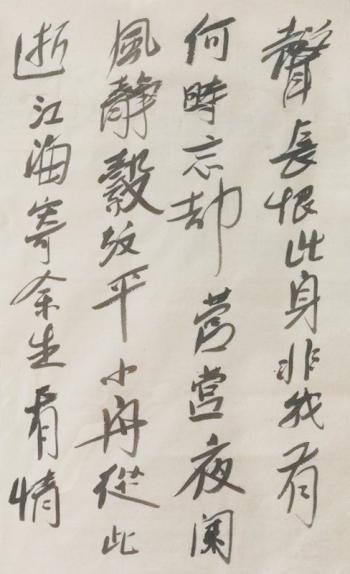 聲長恨此身非我有
何時忘却營營夜闌
風靜縠紋平小舟從此
逝江海寄余生有情